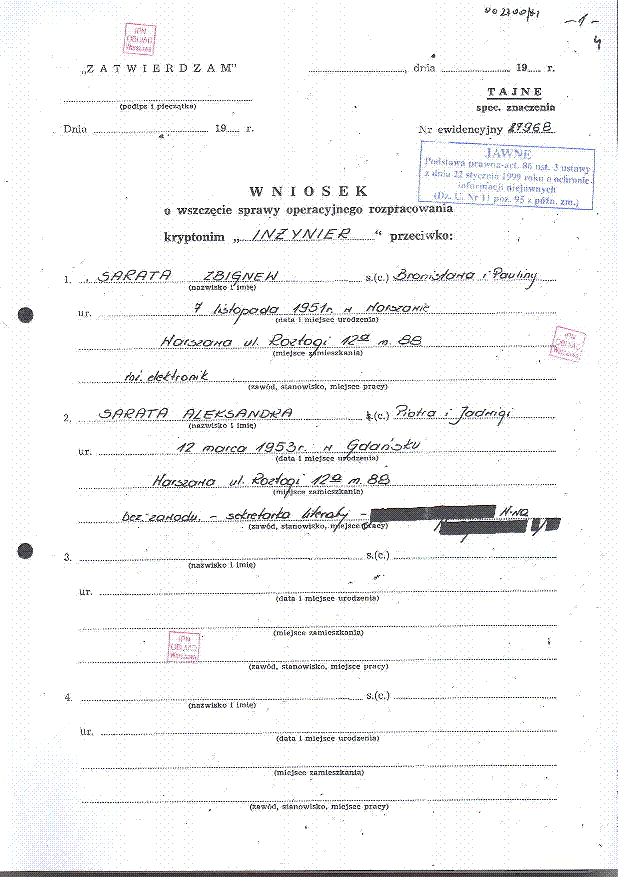 -1-
4
IPN
ODDZIAŁ
Warszawa
„ZATWIERDZAM"
, dnia 19 r.
(podpis i pieczątka)
TAJNE
spec. znaczenia
Dnia 19 r.
Nr ewidencyjny 27968
JAWNE
Podstawa prawna-art. 86 ust. 3 ustawy
z dnia 22 stycznia 1999 roku o ochronie
informacji niejawnych
(Dz. U. Nr 11 poz. 95 z późn. zm.)
WNIOSEK
o wszczęcie sprawy operacyjnego rozpracowania
kryptonim „INŻYNIER" przeciwko:
1. SARATA ZBIGNIEW s.(c.) Bronisława i Pauliny
(nazwisko i imię)
ur. 7 listopada 1951r. w Warszawie
(data i miejsce urodzenia)
Warszawa ul. Rozłogi 12a m. 88
(miejsce zamieszkania)
IPN
ODDZIAŁ
Warszawa
inż. elektronik
(zawód, stanowisko, miejsce pracy)
2. SARATA ALEKSANDRA s.(c.) Piotra i Jadwigi
(nazwisko i imię)
ur. 12 marca 1953r. w Gdańsku
(data i miejsce urodzenia)
Warszawa ul. Rozłogi 12a m. 88
(miejsce zamieszkania)
bez zawodu - sekretarka - W-wa
(zawód, stanowisko, miejsce pracy)
3. s.(c.)
(nazwisko i imię)
ur.
(data i miejsce urodzenia)
(miejsce zamieszkania)
IPN
ODDZIAŁ
Warszawa
(zawód, stanowisko, miejsce pracy)
4. s.(c.)
(nazwisko i imię)
ur.
(data i miejsce urodzenia)
(miejsce zamieszkania)
(zawód, stanowisko, miejsce pracy)